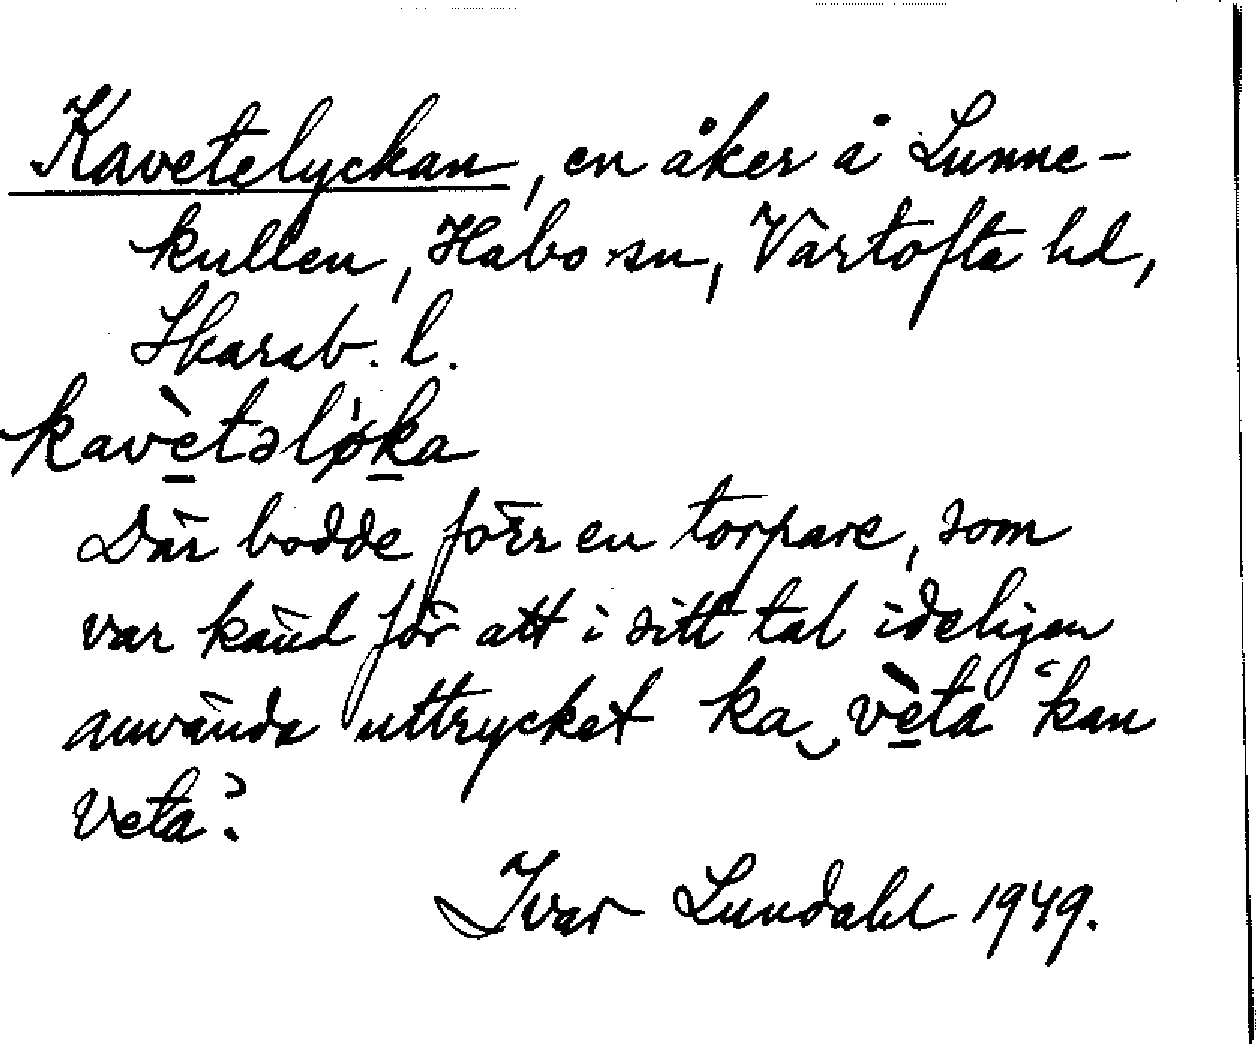 Kavetelyckan, en åker å Lunne-
kullen, Habo sn, Vartofta hd,
Skarab. l.
kavètəlø̀ka
Där bodde förr en torpare, som
var känd för att i sitt tal ideligen
använda uttrycket ka‿vèta "kan
veta".
Ivar Lundahl 1949.